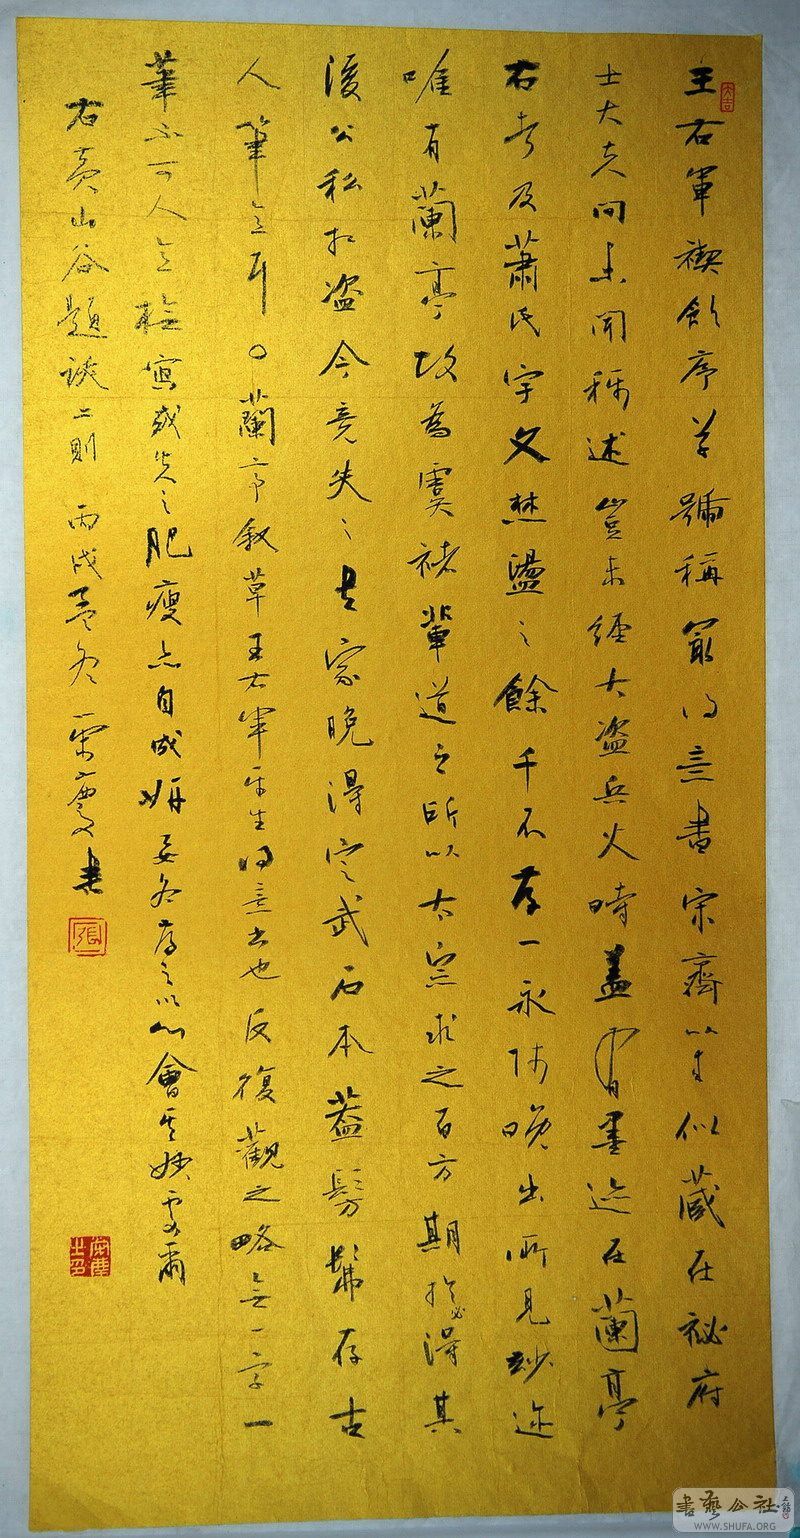 王右軍禊飲序草號稱最得意書宋齊以來似藏在祕府
士大夫間未聞稱述豈未經大盜兵火時蓋有墨迹在蘭亭
右者及蕭氏宇文焚盪之餘千不存一永師晚出所見妙迹
唯有蘭亭故為虞褚輩道之所以太宗求之百方期於必得其
後公私相盜今竟失之書家晚得定武石本蓋髣髴存古
人筆意耳○蘭亭敘草王右軍平生得意書也反復觀之略無一字一
筆不可人意摹寫或失之肥瘦亦自成妍要各存之以心會其妙處爾
右黃山谷題跋二則 丙戌孟冬 慶書
張
書藝公社
WWW.SHUFA.ORG